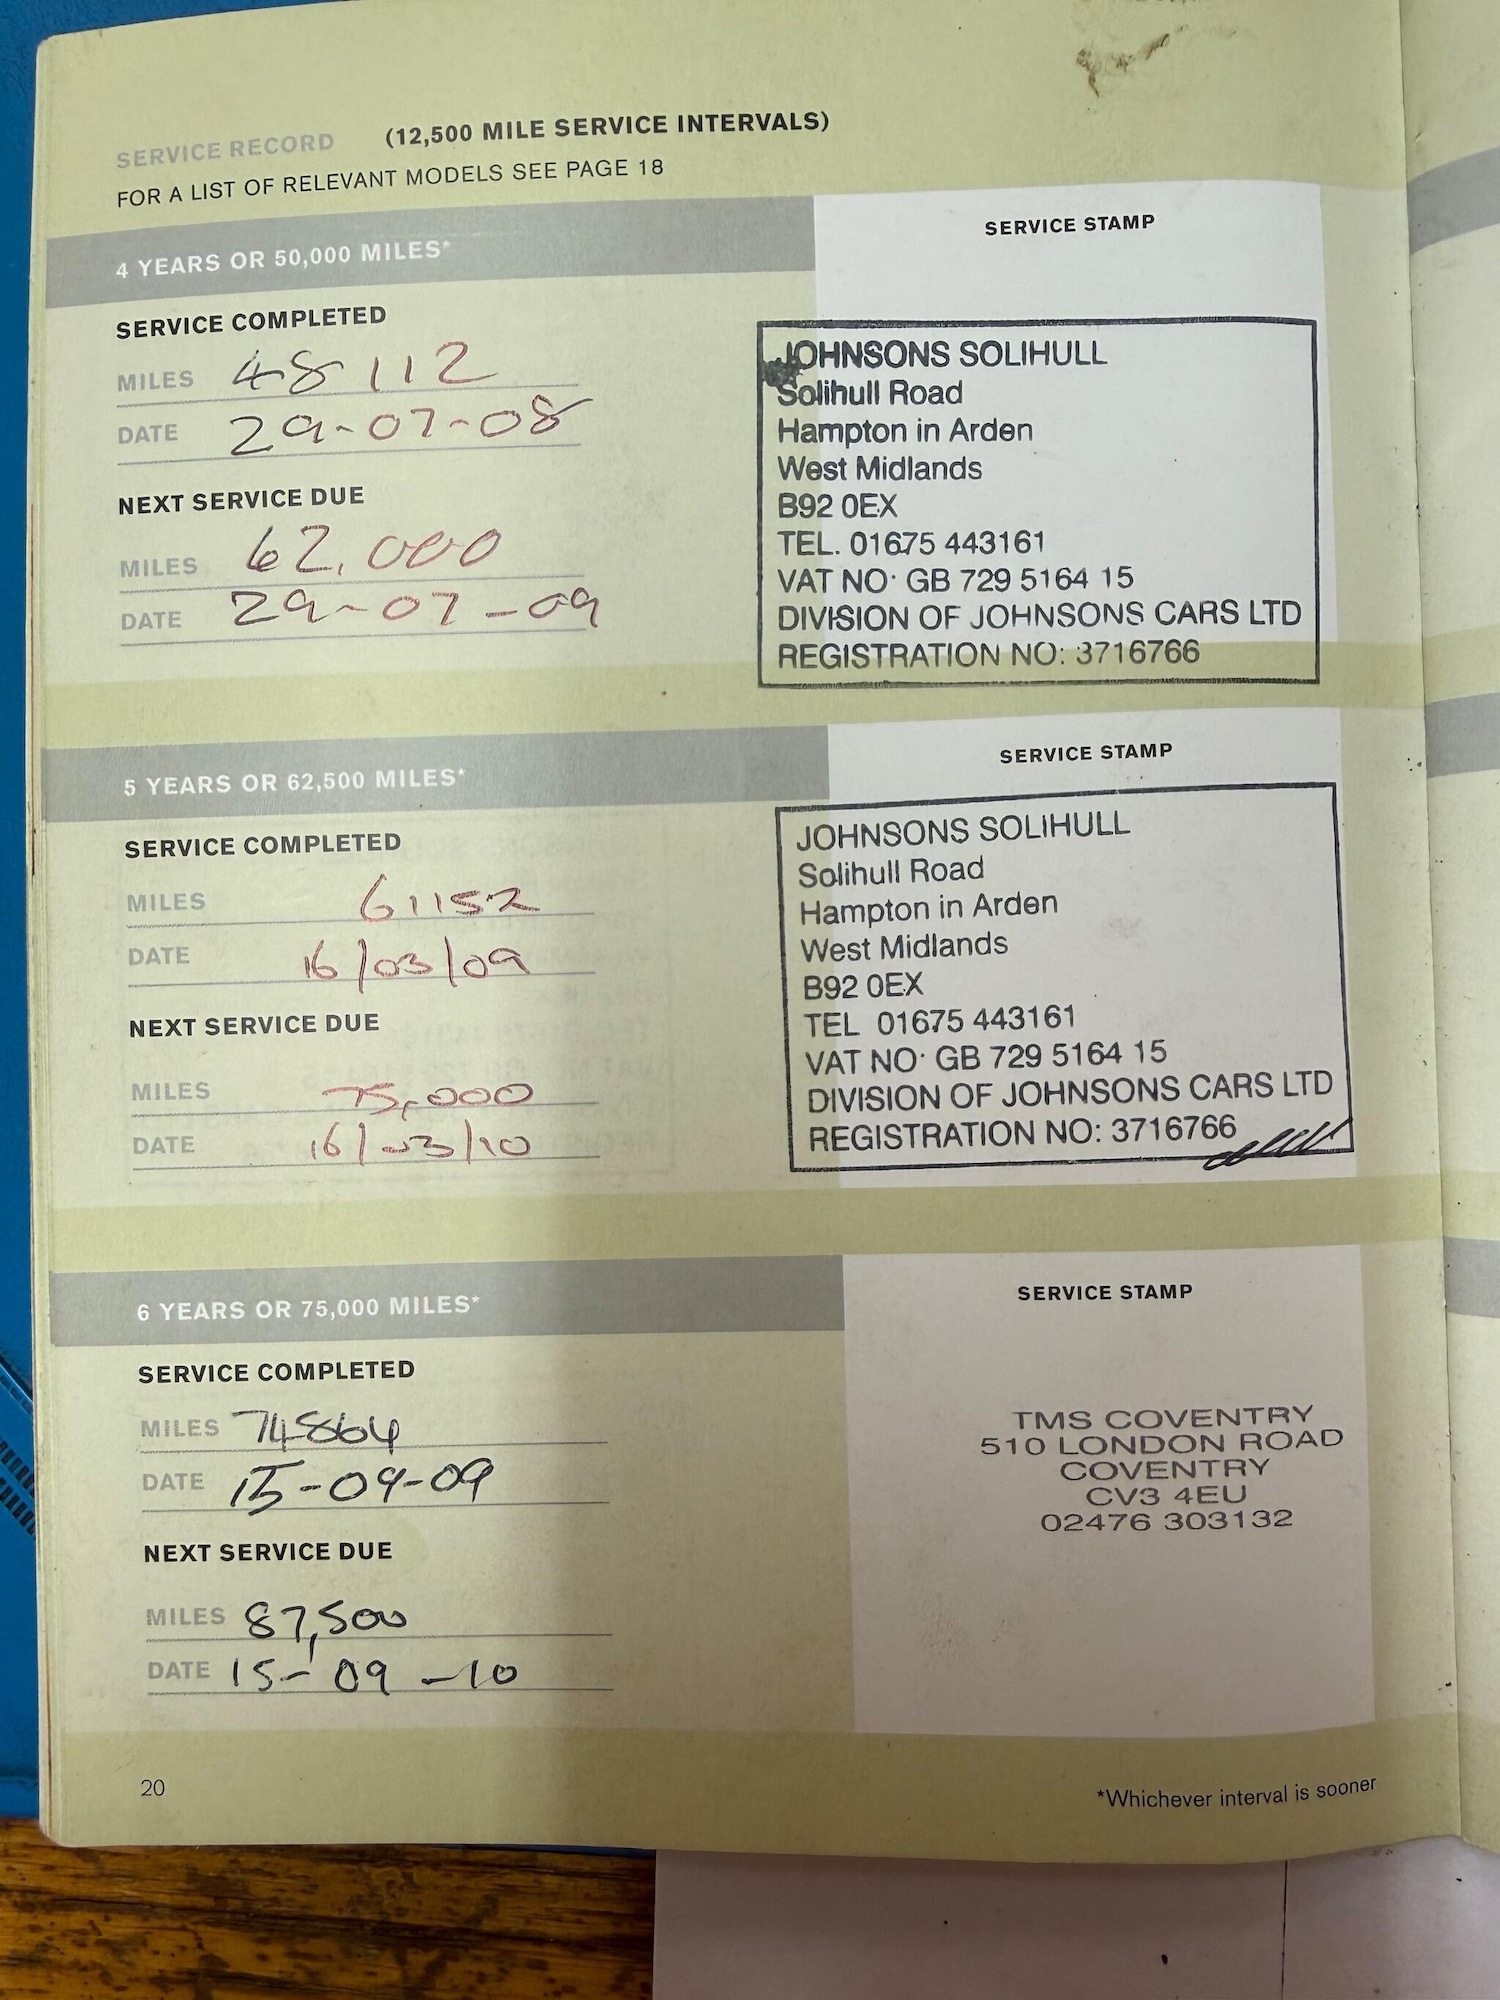 SERVICE RECORD (12,500 MILE SERVICE INTERVALS)
FOR A LIST OF RELEVANT MODELS SEE PAGE 18
4 YEARS OR 50,000 MILES*
SERVICE STAMP
SERVICE COMPLETED
MILES 48112
DATE 29-07-08
NEXT SERVICE DUE
MILES 62,000
DATE 29-07-09
JOHNSONS SOLIHULL
Solihull Road
Hampton in Arden
West Midlands
B92 0EX
TEL. 01675 443161
VAT NO· GB 729 5164 15
DIVISION OF JOHNSONS CARS LTD
REGISTRATION NO: 3716766
5 YEARS OR 62,500 MILES*
SERVICE STAMP
SERVICE COMPLETED
MILES 61152
DATE 16/03/09
NEXT SERVICE DUE
MILES 75,000
DATE 16/03/10
JOHNSONS SOLIHULL
Solihull Road
Hampton in Arden
West Midlands
B92 0EX
TEL 01675 443161
VAT NO· GB 729 5164 15
DIVISION OF JOHNSONS CARS LTD
REGISTRATION NO: 3716766
6 YEARS OR 75,000 MILES*
SERVICE STAMP
SERVICE COMPLETED
MILES 74864
DATE 15-09-09
NEXT SERVICE DUE
MILES 87,500
DATE 15-09-10
TMS COVENTRY
510 LONDON ROAD
COVENTRY
CV3 4EU
02476 303132
20
*Whichever interval is sooner